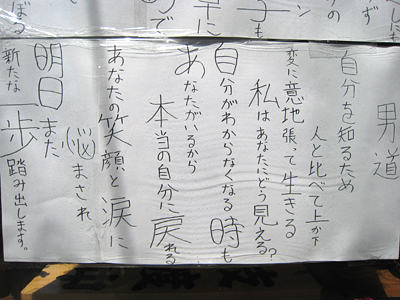 男道
自分を知るため
人と比べて上か下
変に意地張って生きる
私はあなたにどう見える?
自分がわからなくなる時も
あなたがいるから
本当の自分に戻れる
あなたの笑顔と涙に
悩まされ
明日また
新たな一歩踏み出します。